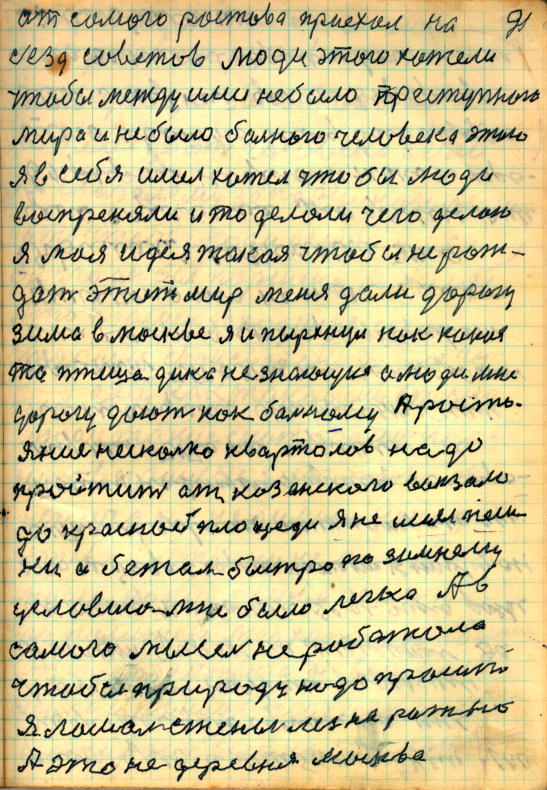 ат самого ростова приехал на 91
сезд советов люди этого хотели
чтобы между ими небыло преступного
мира и небыло балного человека этого
я в себя имел хотел что бы люди
воспрекяли и то делоли чего делою
я моя идея такая чтобы не рож-
дат этит мир меня дали дорогу
зима в москве я и пырхнул как какоя
та птица дика незнающия а люди мне
дорогу дают как балному А рость-
яния несколко кварталов надо
пройтит ат казанского вокзало
до красной площеди я не имел
а бежал быстро по зимнему
целовило мне было легка А в
самого мысел не работола
чтобы природу надо
я ломал стены на рожно
А это не деревня москва